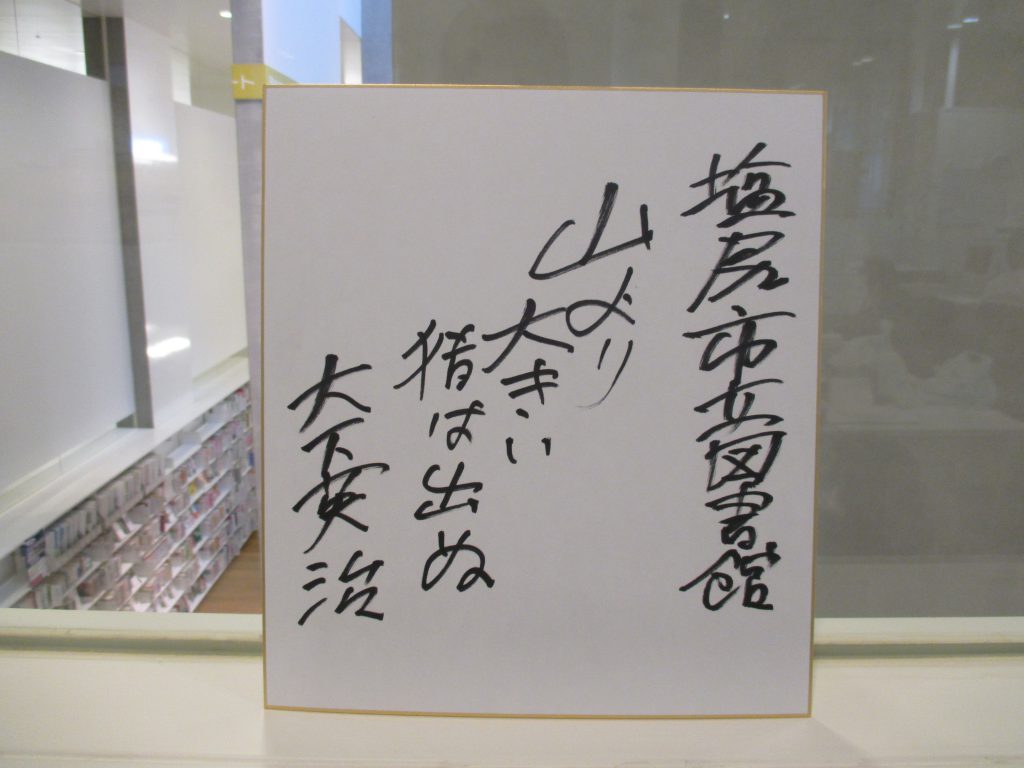 塩尻市立図書館
山より
大きい
猪は出ぬ
大下英治
ト